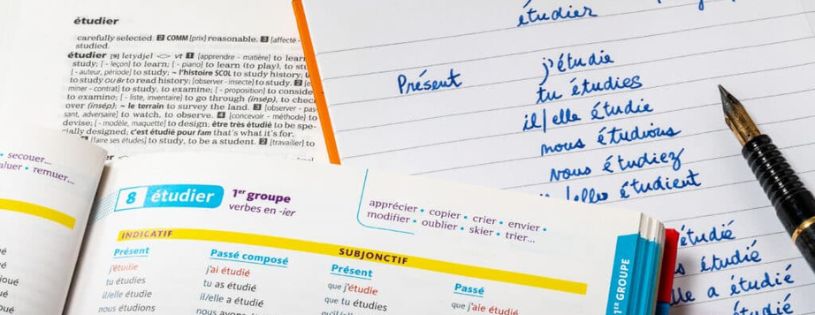 étudier
carefully selected. 2 COMM [prix] reasonable. 3 [affecté -
studied.
étudier [9] [etydje] vt 1 [apprendre - matière] to learn
study; [- leçon] to learn; [- piano] to learn (to play), to
[- auteur, période] to study; ~ l'histoire SCOL to study history,
to study OU BR to read history; [observer - insecte] to study. 2
miner - contrat] to study, to examine; [- proposition] to conside
to examine; [- liste, inventaire] to go through (insép), to chec
over (insép); ~ le terrain to survey the land. 3 [observer - pas
sant, adversaire] to watch, to observe. 4 [concevoir - méthode] to
devise; [- modèle, maquette] to design; être très étudié to be spe-
cially designed; c'est étudié pour fam that's what it's for.
[faire ses études] to study, to be a student. 2 [travailler] to
étudier
Présent
j'étudie
tu étudies
il/elle étudie
nous étudions
vous étudiez
/elles étudient
étudié
étudié
elle a étudié
étudié
• secouer...
aluer • remuer...
8 étudier
1er groupe
verbes en -ier
apprécier • copier • crier • envier •
modifier • oublier • skier • trier...
INDICATIF
SUBJONCTIF
Présent
Passé composé
Présent
Passé
j'étudie
j'ai étudié
que j'étudie
que j'aie étudié
tu étudies
tu as étudié
que tu étudies
il/elle étudie
il/elle a étudié
nous étudions
1er GROUPE